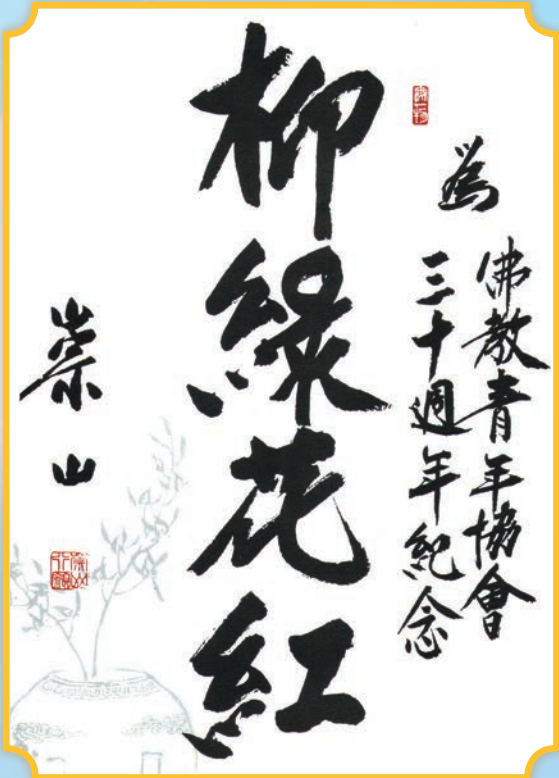 為
佛教青年協會
三十週年紀念
柳綠花紅
崇山